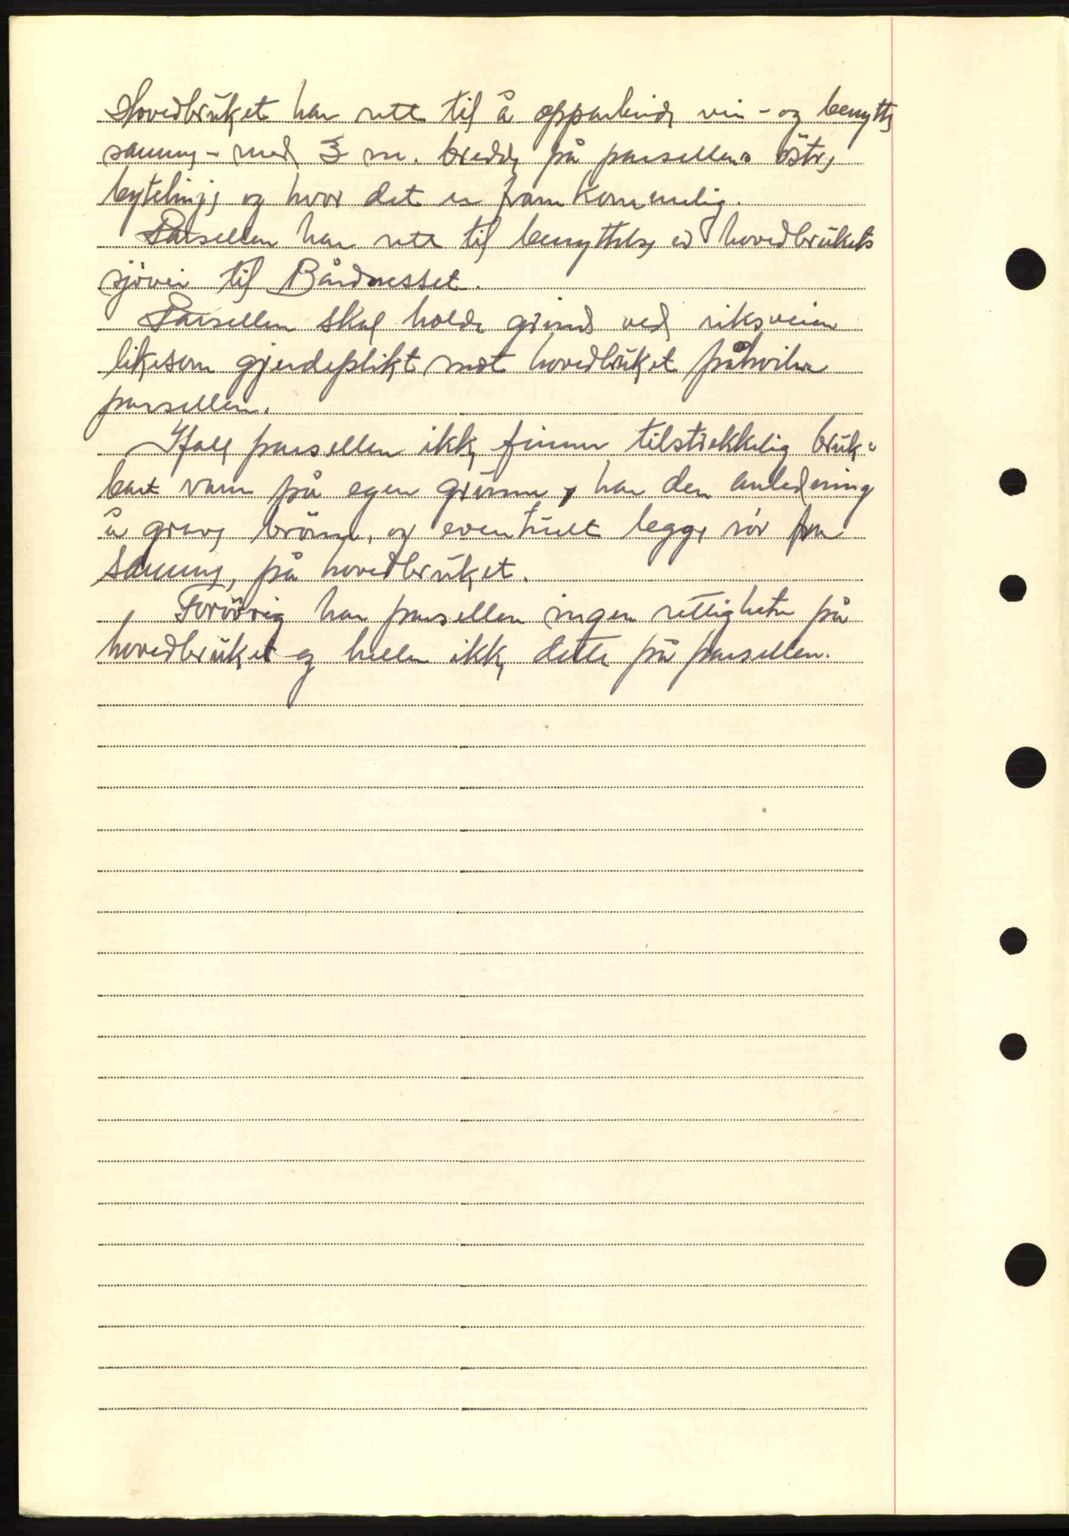 Hovedbruket har rett til å opparbeide vei - og benytte
samme - med 3 m. bredde på parsellens östre
bytelinje og hvor det er framkommelig.
Parsellen har rett til benyttelse av hovedbrukets
sjövei til Bårdnesset.
Parsellen skal holde grind ved riksveien
likesom gjerdeplikt mot hovedbruket påhviler
parsellen.
Ifall parsellen ikke finner tilstrekkelig bruk-
bart vann på egen grunn, har den anledning
å grave brönn, og eventuelt legge rör fra
samme, på hovedbruket.
Forövrig har parsellen ingen rettigheter på
hovedbruket og heller ikke dette på parsellen.